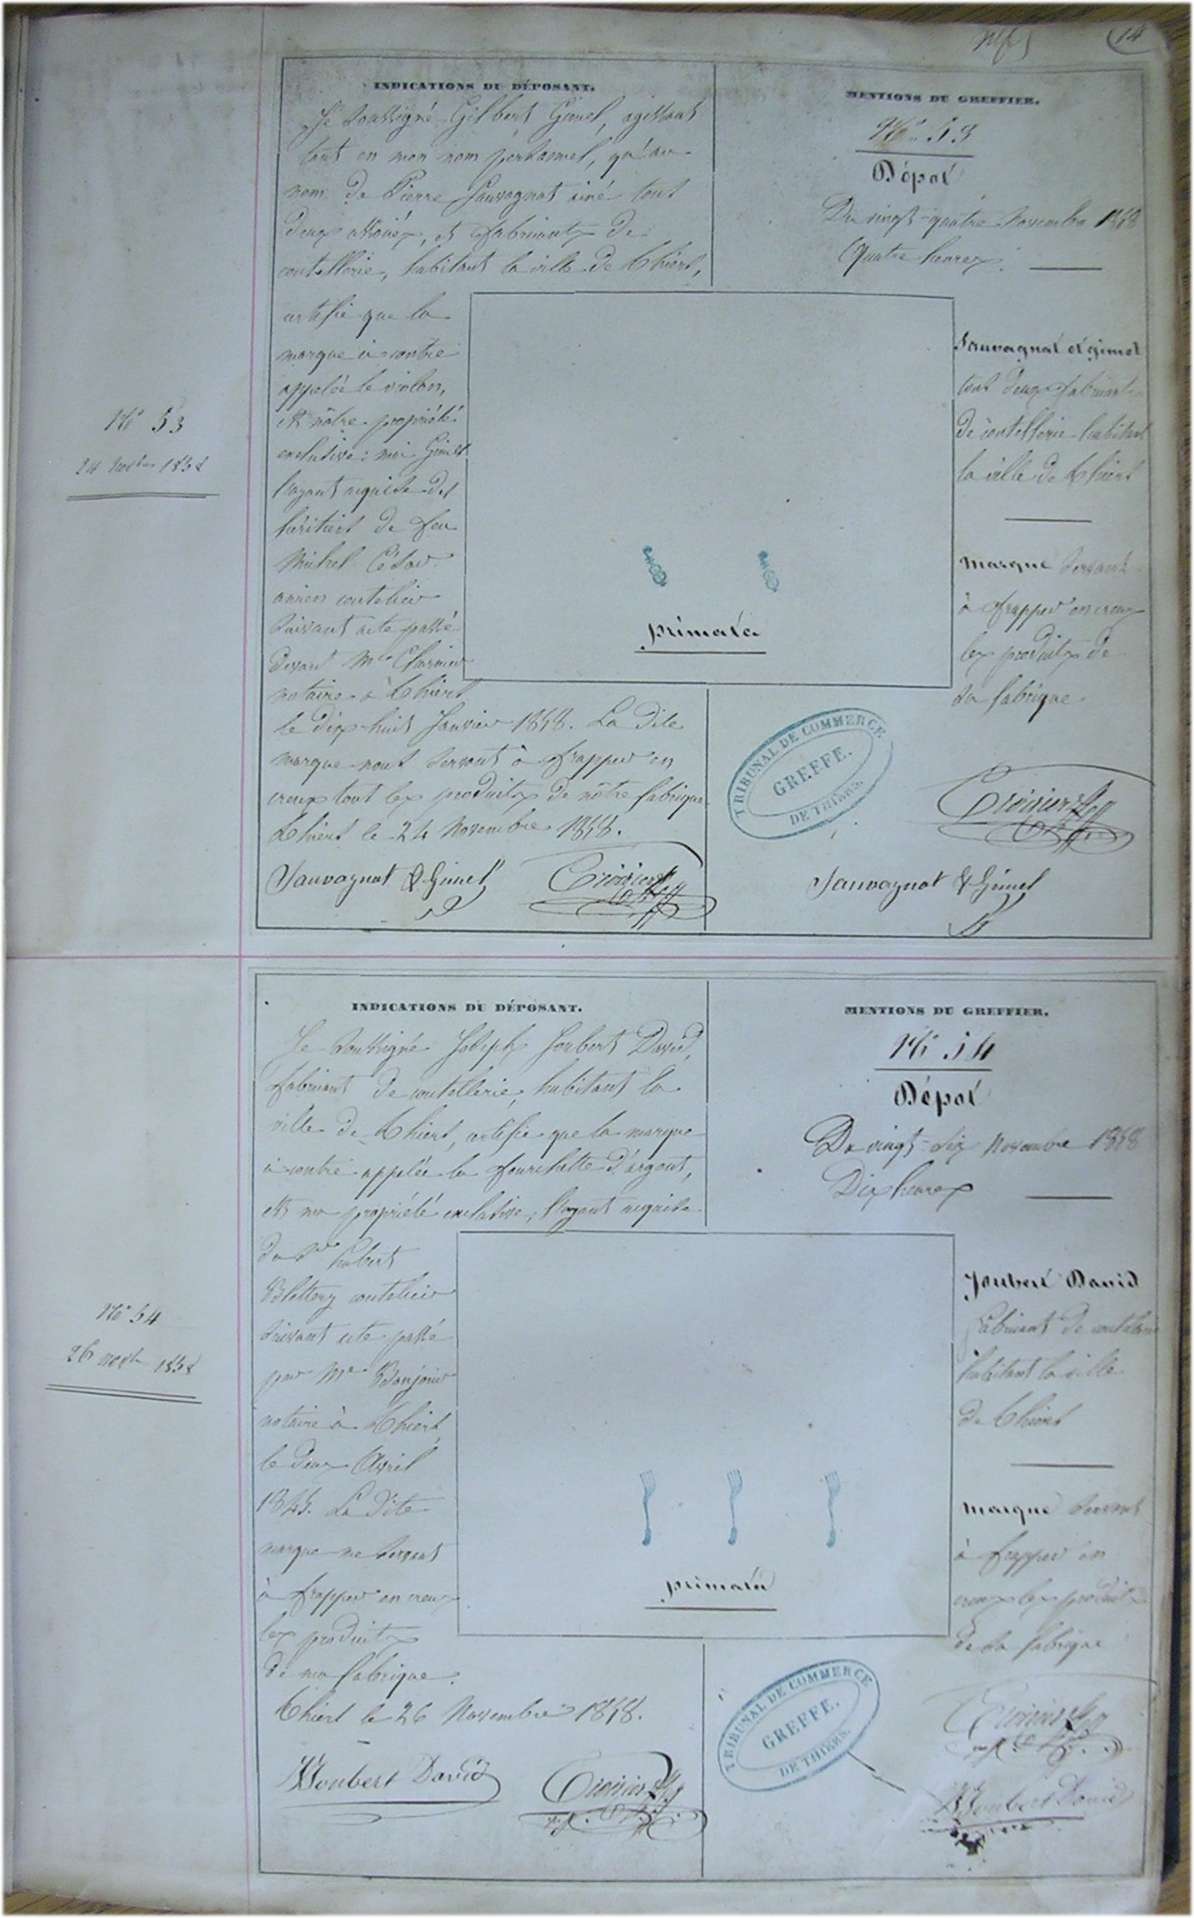 14
INDICATIONS DU DÉPOSANT.
Je soussigné Gilbert Gimel, agissant
tant en mon nom personnel, qu'au
nom de Pierre Sauvagnat ainé tous
deux associés, et fabricants de
coutellerie, habitant la ville de Thiers,
certifie que la
marque ci contre
appelée le violon,
est nôtre propriété
exclusive; moi Gimel
l'ayant acquise des
héritiers de feu
Michel César
ancien coutelier
suivant acte passé
devant Me
notaire à Thiers
le dix-huit Janvier 1858. La dite
marque nous servant à frapper en
creux tous les produits de nôtre fabrique
Thiers le 24 Novembre 1858.
Sauvagnat & Gimel
MENTIONS DU GREFFIER.
No. 53
Dépôt
Du vingt-quatre Novembre 1858
Quatre heures.
Sauvagnat et Gimel
tous deux fabricants
de coutellerie habitant
la ville de Thiers
marque servant
à frapper en creux
les produits de
sa fabrique
primata
TRIBUNAL DE COMMERCE
GREFFE.
DE THIERS.
Sauvagnat & Gimel
No 53
24 novbre 1858
INDICATIONS DU DÉPOSANT.
Je soussigné Joseph Joubert David,
fabricant de coutellerie, habitant la
ville de Thiers, certifie que la marque
ci contre appelée la fourchette d'argent,
est ma propriété exclusive, l'ayant acquise
du Sr hubert
Blettery coutelier
suivant acte passé
par Me Bonjour
notaire à Thiers
le deux Avril
1845. La dite
marque me servant
à frapper en creux
les produits
de ma fabrique.
Thiers le 26 Novembre 1858.
Joubert David
MENTIONS DU GREFFIER.
No. 54
Dépôt
Du vingt-six Novembre 1858
Dix heures
Joubert David
fabricant de coutellerie
habitant la ville
de Thiers
marque servant
à frapper en
creux les produits
de sa fabrique
primata
TRIBUNAL DE COMMERCE
GREFFE.
DE THIERS.
Joubert David
No 54
26 novbre 1858